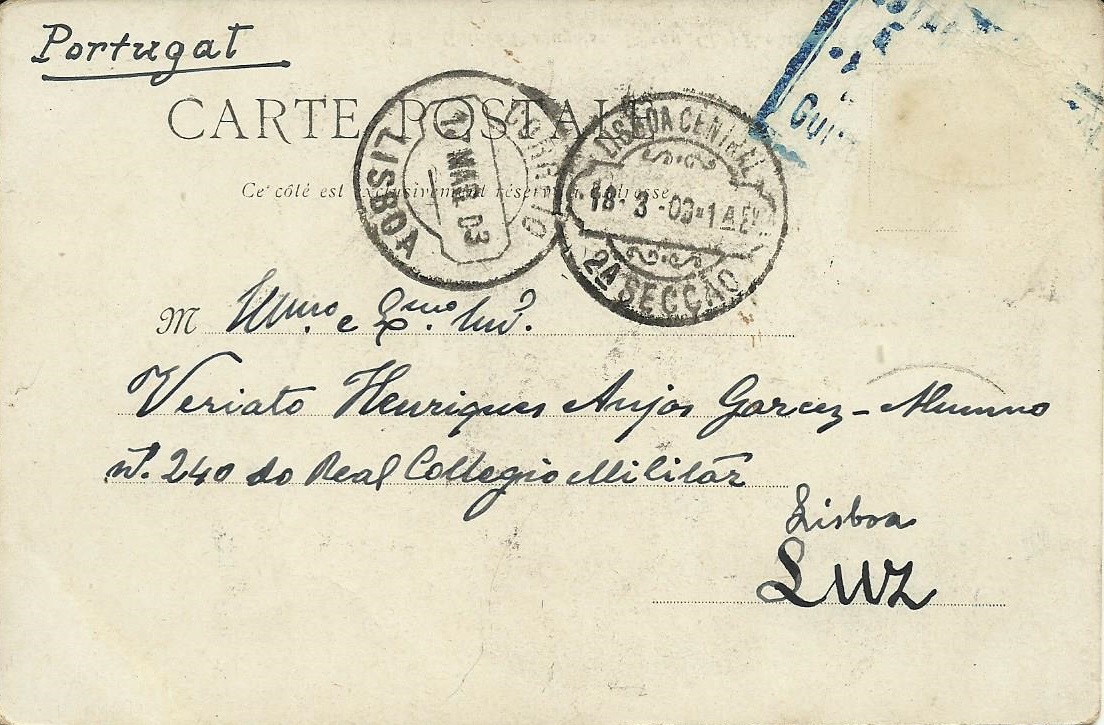 Portugal
CARTE POSTALE
Ce côté est exclusivement réservé à l'adresse
CORREIO
17 MAR 03
LISBOA
LISBOA CENTRAL
18-3-03-1A
2A SECÇÃO
M Illmo. e Exmo. Snr.
Veriato Henriques Anjos Garcez - Alumno
nº. 240 do Real Collegio Militar
Lisboa
Luz